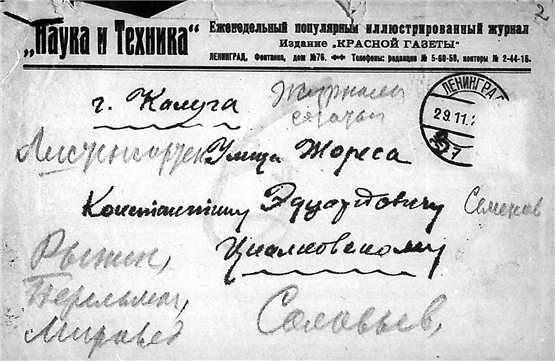 2
„Наука и Техника“
Еженедельный популярный иллюстрированный журнал
Издание „КРАСНОЙ ГАЗЕТЫ“
ЛЕНИНГРАД, Фонтанка, дом №76. Телефоны: редакции № 5-60-58, конторы № 2-44-15.
г. Калуга
Журналы
ЛЕНИНГРАД
29.11.2
Улица Жореса
Константину Эдуардовичу
Семенов
Циалковскому
Рынин,
Перельман,
Мировед
Соловьев,